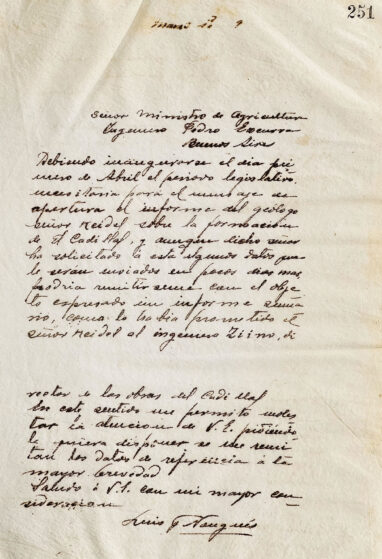 251
Marzo 12 9
Señor Ministro de Agricultura
Ingeniero Pedro Ezcurra
Buenos Aires
Debiendo inaugurarse el dia pri
mero de Abril el periodo legislativo
necesitaria para el mensaje de
apertura el informe del geólogo
señor Keidel sobre la formacion
de El Cadillal, y aunque dicho señor
ha solicitado de esta algunos datos que
le seran enviados en pocos dias mas,
podria remitirseme con el obje
to expresado un informe suma
rio, como lo habia prometido el
señor Keidel al ingeniero Ziino, di
rector de las obras del Cadillal
En este sentido me permito moles
tar la atencion de V.E. pidiendo
le quiera disponer se me remi
tan los datos de referencia á la
mayor brevedad
Saludo á V.E. con mi mayor con
sideracion
Luis F Nougués